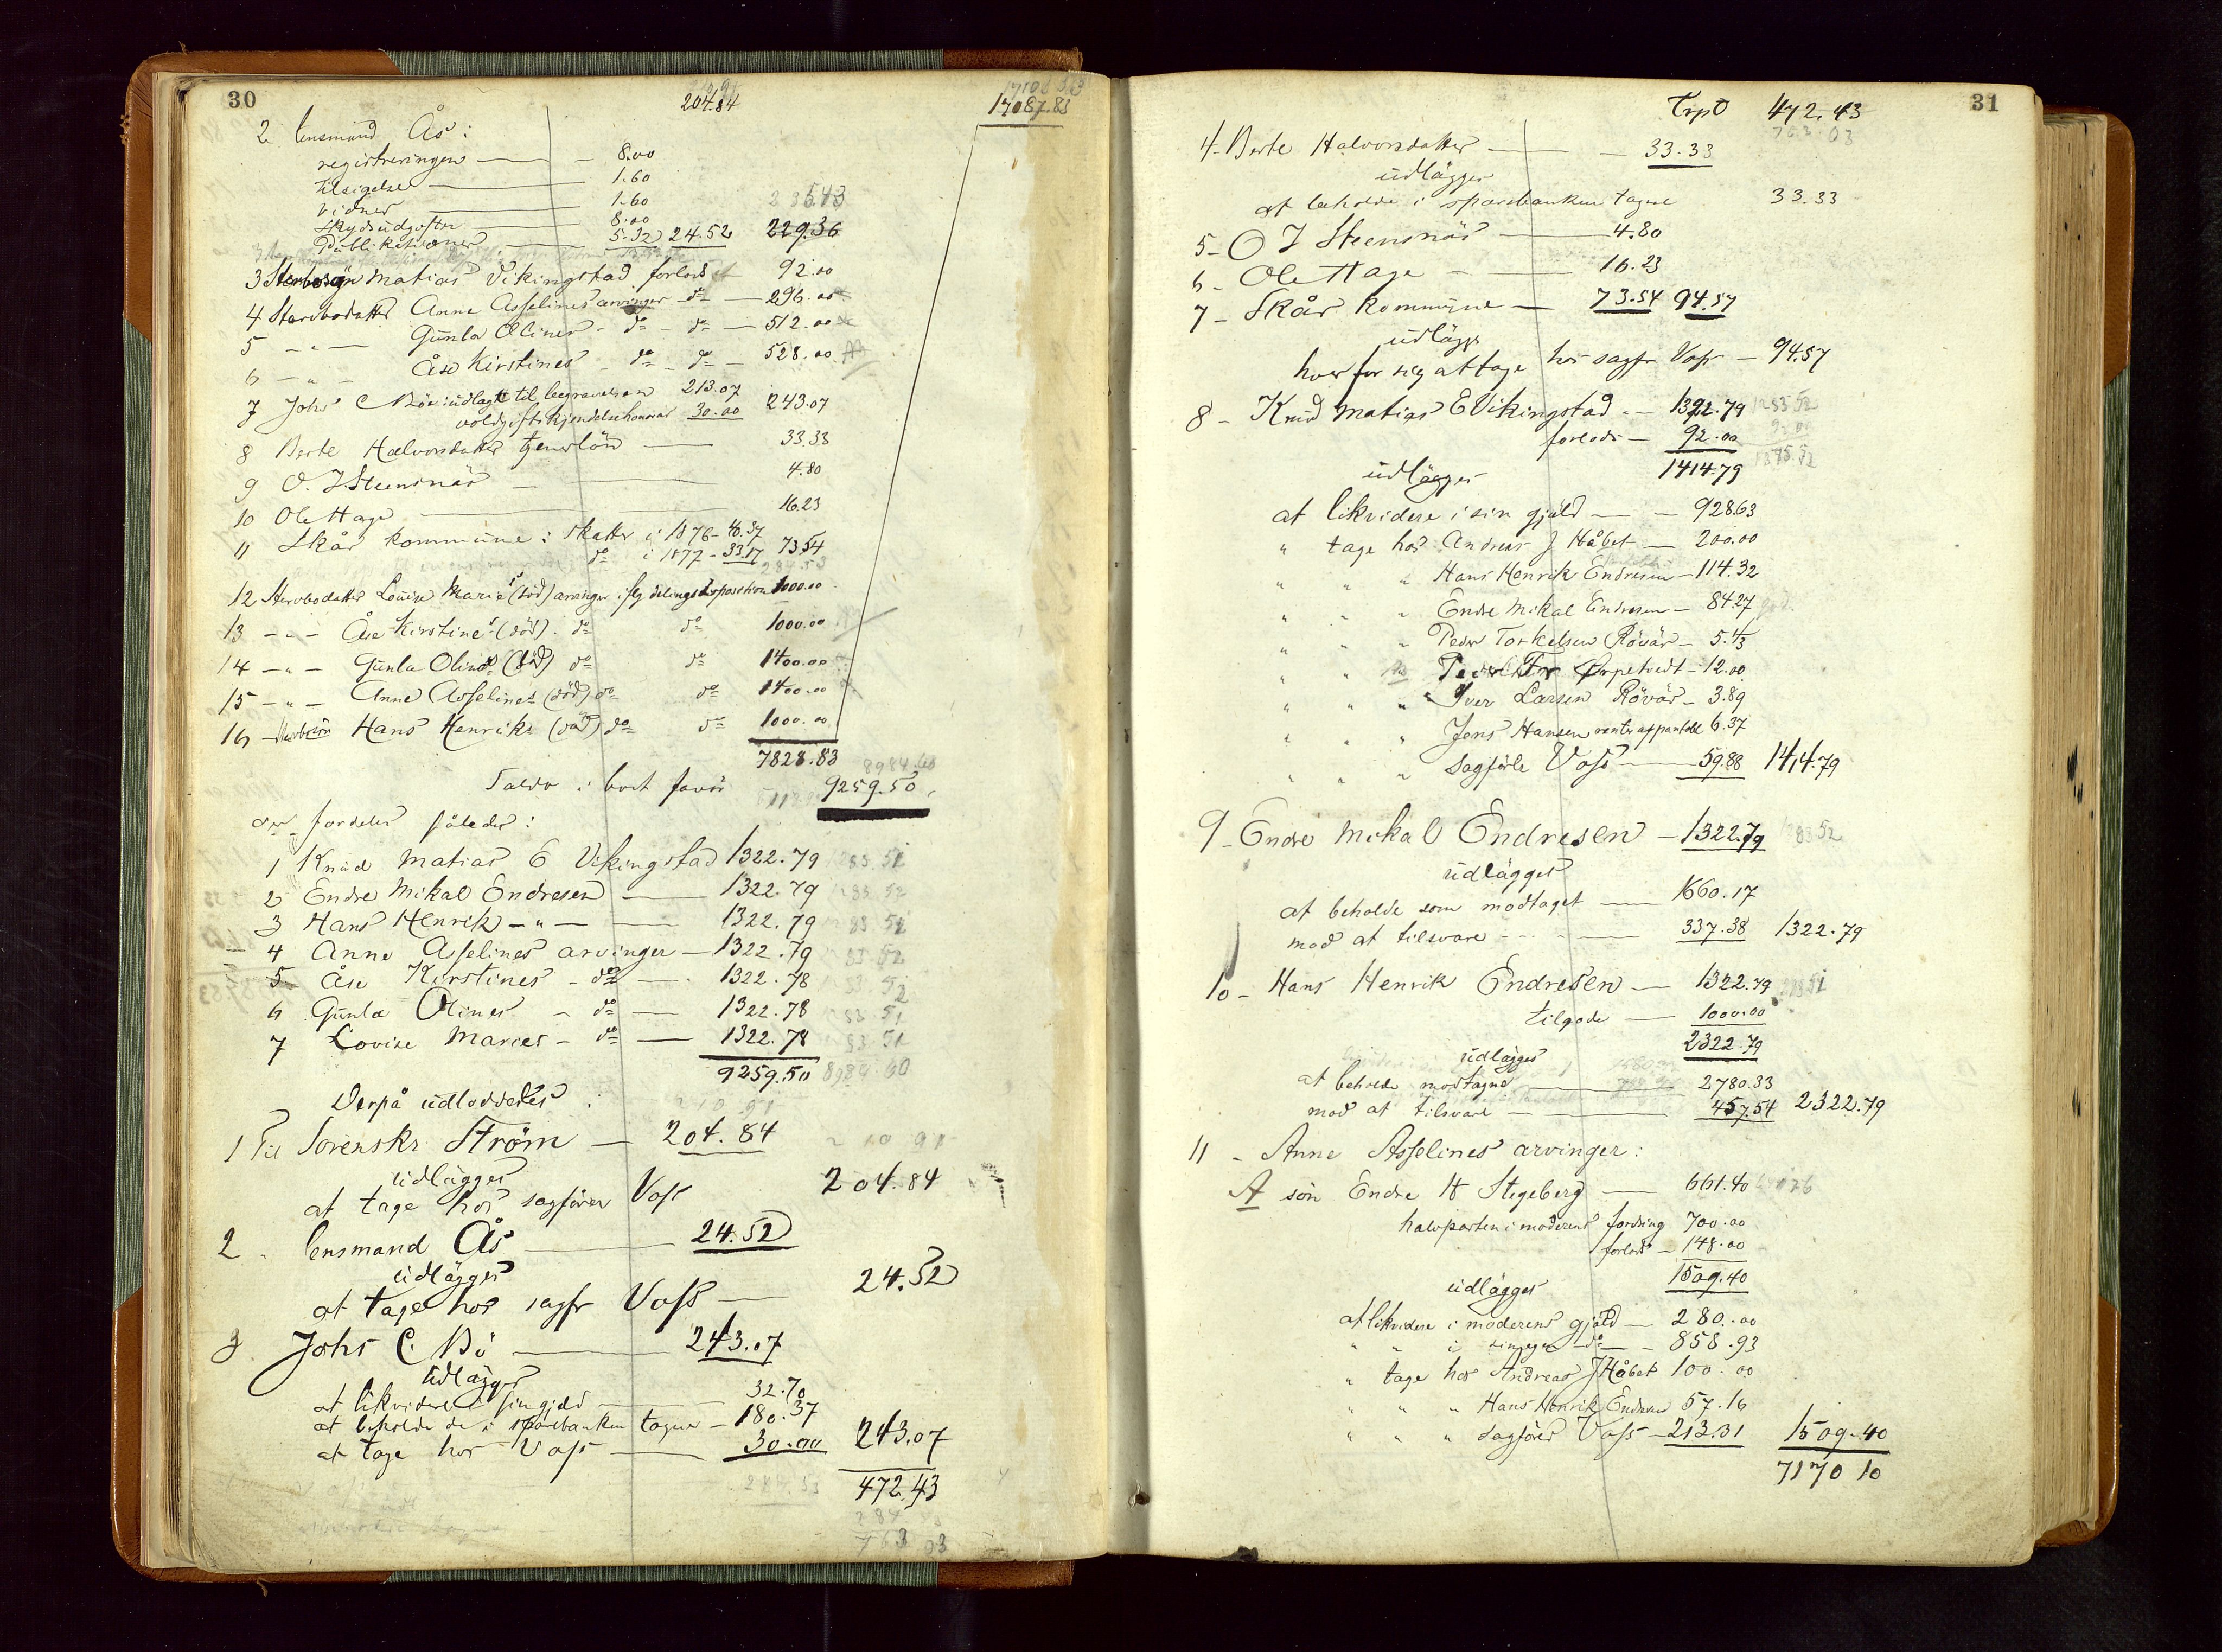 30
204.84 17087.83
2 lensmand Ås:
registreringen — 8.00
tilsigelse — 1.60
vidner — 1.60
skydsudgifter — 8.00
Publikationer — 5.32 24.52 229.36
3 Matias Vikingstad forlods 92.00
4 Stervbodatter Anne Asselines arvinger do — 296.00
5 - " - Gunla Olines - do - do — 512.00
6 - " - Åse Kirstines - do - do — 528.00
7 Johs C Bö: udlagt til begravelsen 213.07
voldgiftskjendelse honorar 30.00 243.07
8 Berte Halvorsdatter tjenerlön — 33.33
9 O. J. Steensnäs — 4.80
10 Ole Hage — 16.23
11 Skåre kommune: skatter i 1876 - 40.37
do i 1877 - 33.17 73.54
12 Stervbodatter Lovise Maries (död) arvinger iflg delingsdisposition 1000.00
13 - " - Åse Kirstines (död) do do 1000.00
14 - " - Gunla Olines (död) do do 1400.00
15 - " - Anne Asselines (död) do do 1400.00
16 - Hans Henriks (död) do do 1000.00
7828.83
Saldo i boets favör 9259.50
der fordeles således:
1 Knud Matias E Vikingstad 1322.79
2 Endre Mikal Endresen — 1322.79
3 Hans Henrik - " - — 1322.79
4 Anne Asselines arvinger — 1322.79
5 Åse Kirstines - do — 1322.78
6 Gunla Olines - do — 1322.78
7 Lovise Maries - do — 1322.78
9259.50
Derpå udloddedes:
1 Til Sorenskr Ström — 204.84
udlägges
at tage hos sagförer Voss 204.84
2 - lensmand Ås — 24.52
udlägges
at tage hos sagfr Voss — 24.52
3 Johs C. Bö — 243.07
udlägges
at likvidere i sin gjeld — 32.70
at beholde de i sparebanken tagne — 180.37
at tage hos Voss — 30.00 243.07
472.43
763 03
31
Trpt 472.43
4 - Berte Halvorsdatter — 33.33
udlägges
at beholde i sparebanken tagne 33.33
5 - O J Steensnäs — 4.80
6 - Ole Hage — 16.23
7 - Skåre kommune — 73.54 94.57
udlägges
hver for sig at tage hos sagfr Voss — 94.57
8 - Knud Matias E Vikingstad - 1322.79
forlods — 92.00
1414.79
udlägges
at likvidere i sin gjäld — 928.63
" tage hos Andreas J Håbet — 200.00
" " " Hans Henrik Endresen — 114.32
" " " Endre Mikal Endresen — 84.27
" " " Peder Torkelsen Rövär — 5.43
" " " Peder — 12.00
" " " Iver Larsen Rövär — 3.89
" " " Jens Hansen 6.37
" " " Sagförer Voss — 59.88 1414.79
9 - Endre Mikal Endresen — 1322.79
udlägges
at beholde som modtaget — 1660.17
mod at tilsvare — 337.38 1322.79
10 - Hans Henrik Endresen — 1322.79
tilgode — 1000.00
2322.79
udlägges
at beholde modtagne — 2780.33
mod at tilsvare — 457.54 2322.79
11 - Anne Asselines arvinger:
A sön Endre H Stegeberg — 661.40
halvparten i moderens fordring 700.00
forlods — 148.00
1509.40
udlägges
at likvidere i moderens gjäld — 280.00
" " i sin egen do — 858.93
" tage hos Andreas J Håbet 100.00
" " " Hans Henrik Endresen 57.16
" " " Sagförer Voss — 213.31 1509.40
7170 10